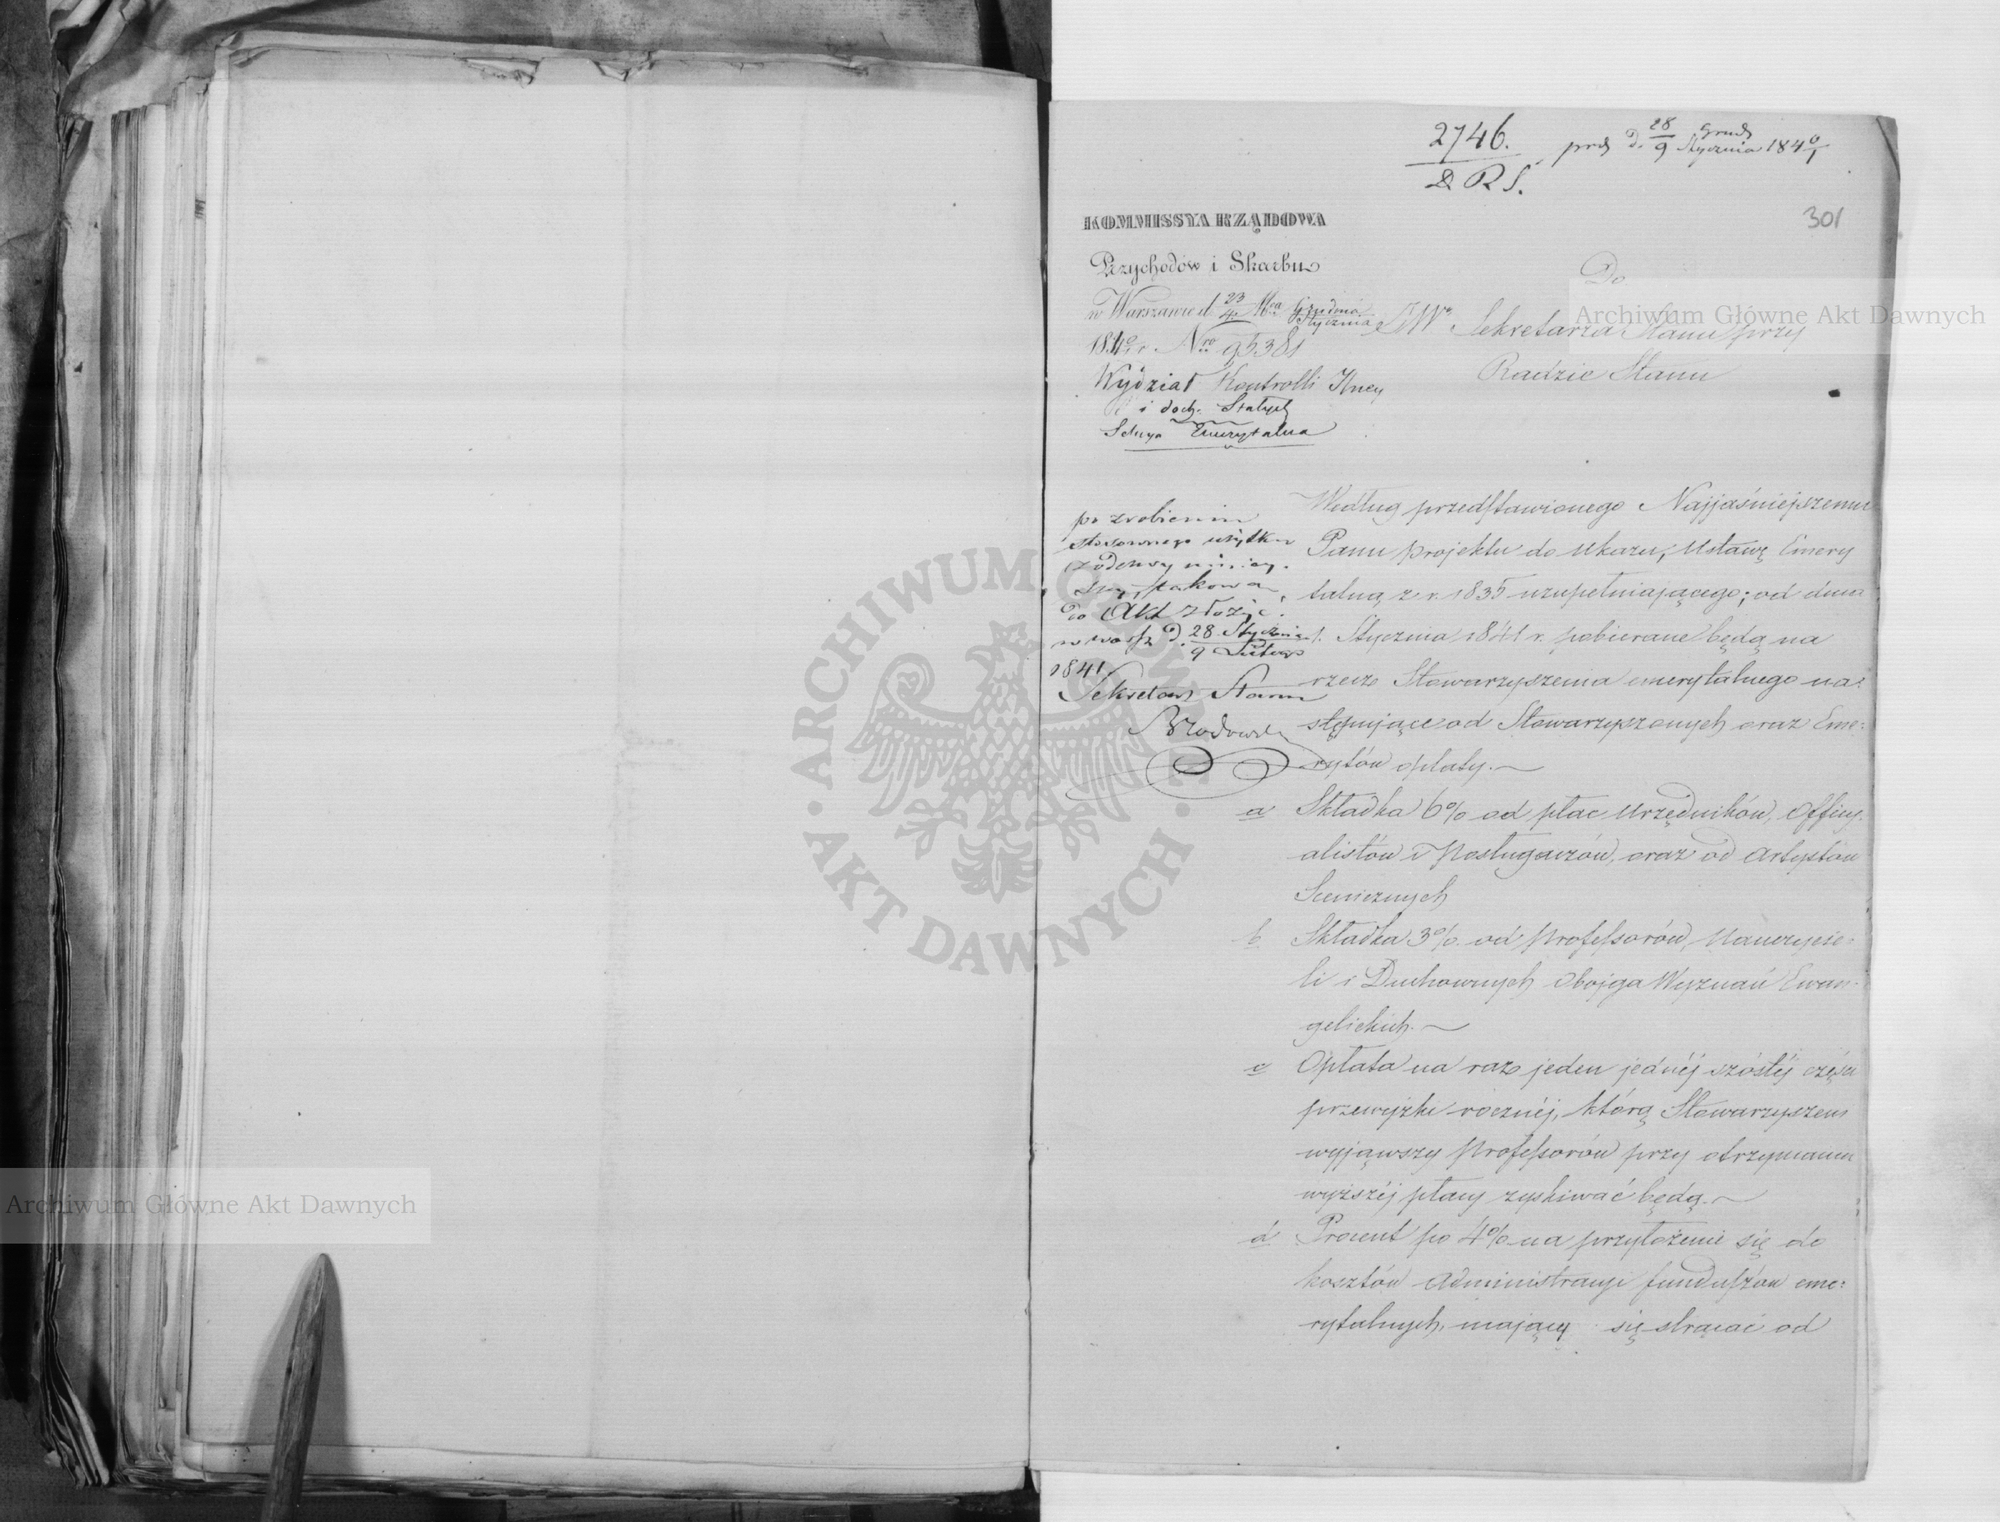 2746.
D R S.
prd D. 28/9 Grud/Stycznia 1840/1
301
KOMMISSYA RZĄDOWA
Przychodów i Skarbu
w Warszawie d. 23/4 Mca Grudnia/Stycznia
1840/1 r. Nro 95381
Wydział Kontrolli
i doch. Stałych
Sekcya Emerytalna
Do
JW. Sekretarza Stanu przy
Radzie Stanu
po zrobieniu
stosownego użytku
z odezwy niniej-
szej, takowa
do Akt złożyć.
w Warsz. D. 28 Stycznia/9 Lutego
1841
Sekretarz Stanu
Według przedstawionego Najjaśniejszemu
Panu projektu do Ukazu, Ustawę Emery
talną z r. 1835 uzupełniającego; od dnia
1. Stycznia 1841 r. pobierane będą na
rzecz Stowarzyszenia emerytalnego na=
stępujące od Stowarzyszonych oraz Eme=
rytów opłaty.
a Składka 6% od płac Urzędników, Officy-
alistów i Posługaczów, oraz od Artystów
Scenicznych
b Składka 3% od Professorów, Nauczycie=
li i Duchownych Obojga Wyznań Ewan-
gelickich.
c Opłata na raz jeden jednéj szóstéj części
przewyżki rocznéj, którą Stowarzyszeni
wyjąwszy Professorów przy otrzymaniu
wyższéj płacy zyskiwać będą.
d Procent po 4% na przyłożenie się do
kosztów Administracyi funduszów eme=
rytalnych, mający się strącać od
Archiwum Główne Akt Dawnych
Archiwum Główne Akt Dawnych
ARCHIWUM GŁÓWNE · AKT DAWNYCH ·